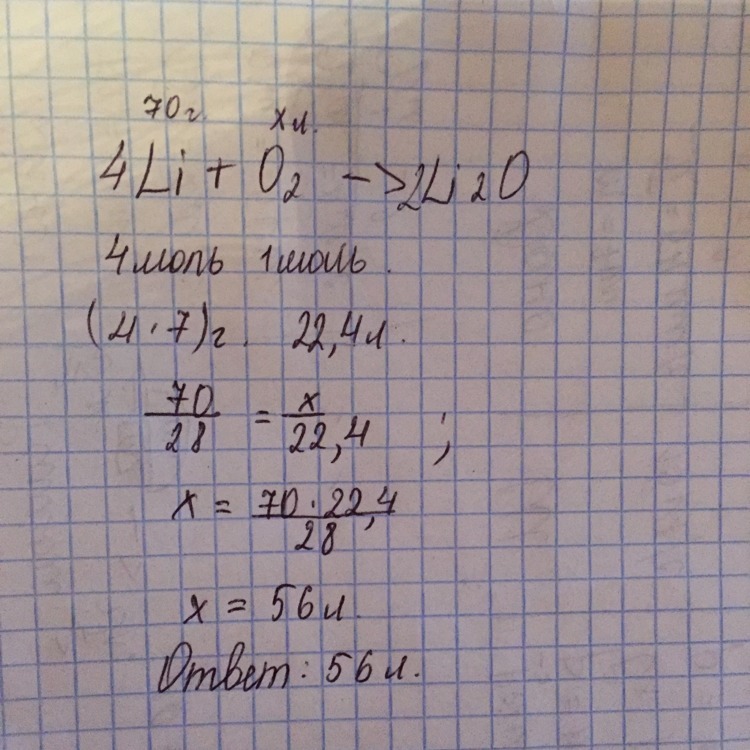 70г хл.
4Li + O₂ -> 2Li₂O
4моль 1моль.
(4·7)г. 22,4л.
70/28 = x/22,4 ;
x = 70·22,4/28
x = 56л
Ответ: 56л.